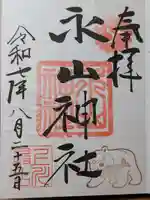 奉拝
永山神社
令和七年八月二十五日